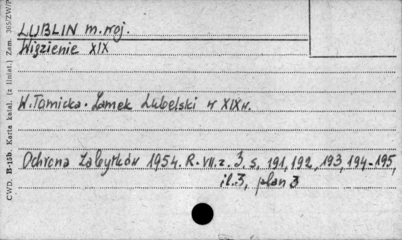 LUBLIN m. woj.
Więzienie XIX
W. Tomicka. Zamek Lubelski w XIX w.
Ochrona Zabytków 1954. R. VII. z. 3. s. 191, 192, 193, 194-195,
il. 3, plan 3
CWD. B-15b. Karta katal. (z liniat.) Zam. 365/ZW/P